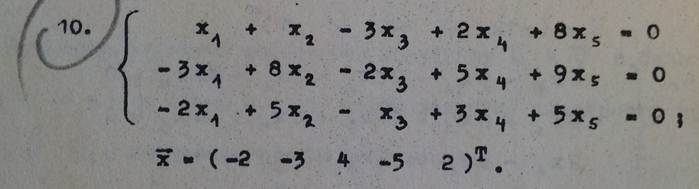 10. x₁ + x₂ - 3x₃ + 2x₄ + 8x₅ = 0
- 3x₁ + 8x₂ - 2x₃ + 5x₄ + 9x₅ = 0
- 2x₁ + 5x₂ - x₃ + 3x₄ + 5x₅ = 0 ;
x̄ = ( -2 -3 4 -5 2 )ᵀ.